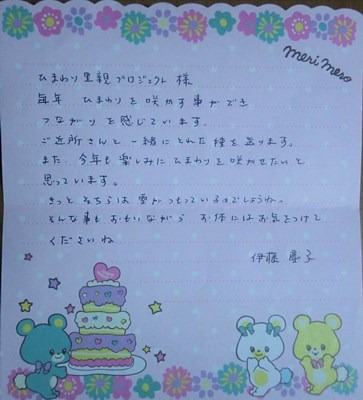 meri mero
ひまわり里親プロジェクト 様
毎年 ひまわりを咲かす事ができ
つながりを感じています。
ご近所さんと一緒にとれた種を送ります。
また、今年も楽しみにひまわりを咲かせたいと
思っています。
きっと そちらは雪がつもっているのでしょうね。
そんな事もおもいながら お体にはお気をつけて
くださいね
伊藤 子